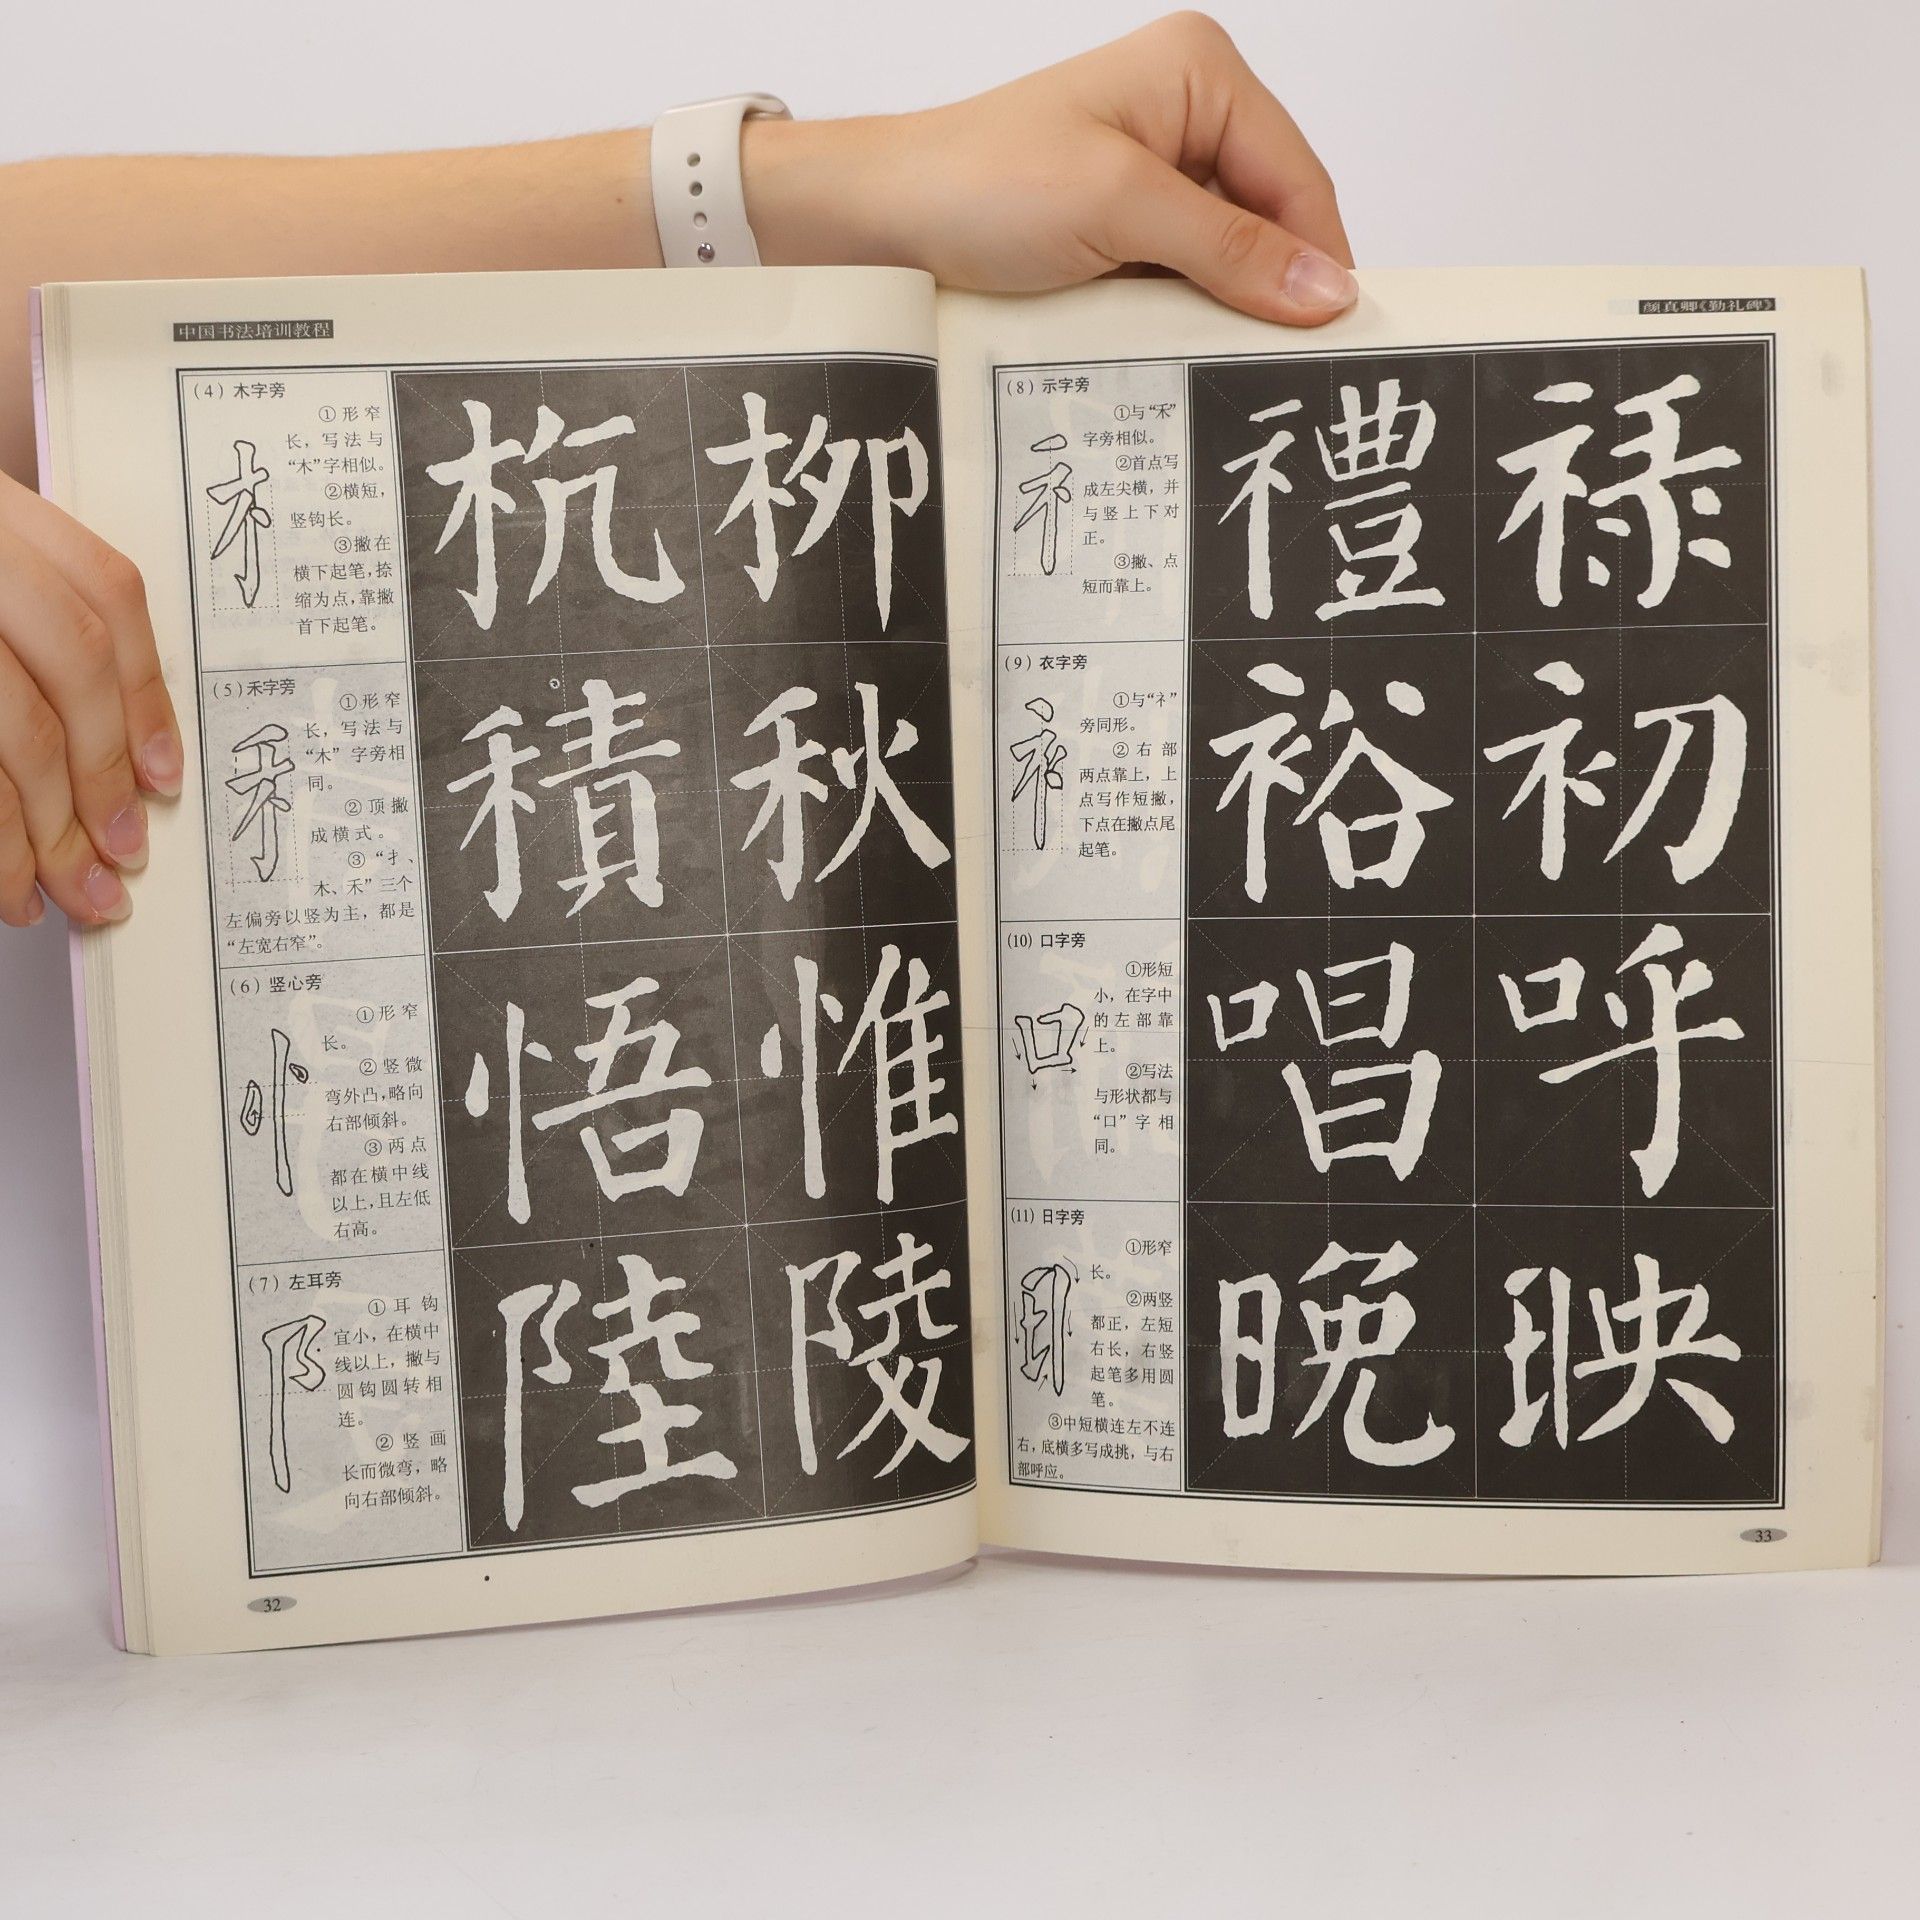 中国书法培训教程
(4) 木字旁
①形窄
长，写法与
“木”字相似。
②横短，
竖钩长。
③撇在
横下起笔，捺
缩为点，靠撇
首下起笔。
杭柳
(5)禾字旁
①形窄
长，写法与
“木”字旁相
同。
②顶撇
成横式。
③“扌、
木、禾”三个
左偏旁以竖为主，都是
“左宽右窄”。
積秋
(6) 竖心旁
①形窄
长。
②竖微
弯外凸，略向
右部倾斜。
③两点
都在横中线
以上，且左低
右高。
悟惟
(7) 左耳旁
①耳钩
宜小，在横中
线以上，撇与
圆钩圆转相
连。
②竖画
长而微弯，略
向右部倾斜。
陸陵
32
颜真卿《勤礼碑》
(8) 示字旁
①与“禾”
字旁相似。
②首点写
成左尖横，并
与竖上下对
正。
③撇、点
短而靠上。
禮禄
(9) 衣字旁
①与“礻”
旁同形。
②右部
两点靠上，上
点写作短撇，
下点在撇点尾
起笔。
裕初
(10) 口字旁
①形短
小，在字中
的左部靠
上。
②写法
与形状都与
“口”字相
同。
唱呼
(11) 日字旁
①形窄
长。
②两竖
都正，左短
右长，右竖
起笔多用圆
笔。
③中短横连左不连
右，底横多写成挑，与右
部呼应。
晚映
33